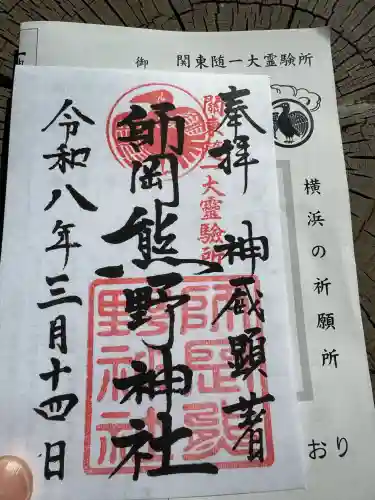 御
関東随一大霊験所
横浜の祈願所
おり
奉拝
神威顕著
關東随一大靈驗所
師岡熊野神社
師岡熊野神社
令和八年三月十四日